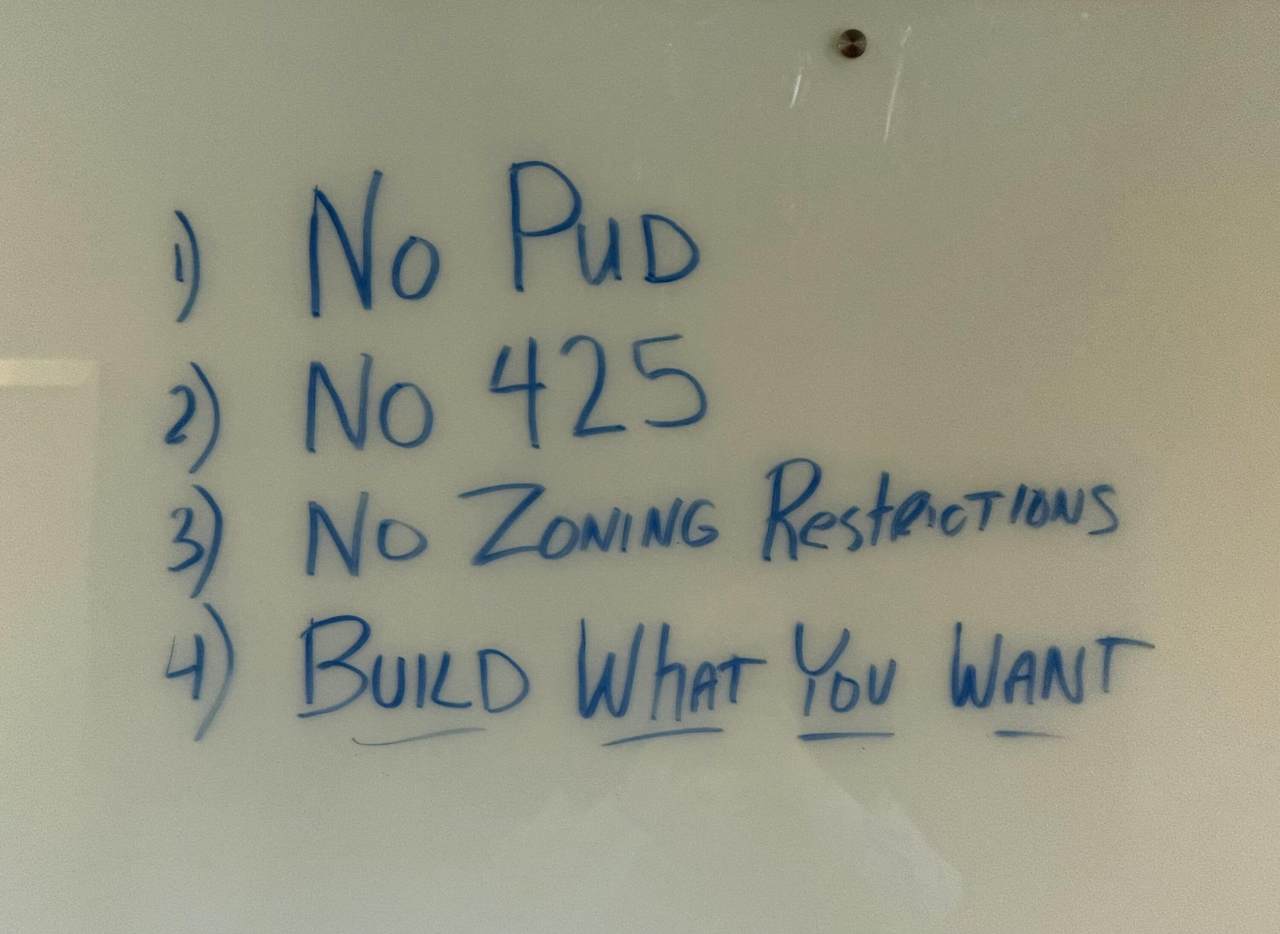 1) No PUD
2) No 425
3) No ZONING RESTRICTIONS
4) BUILD WHAT YOU WANT